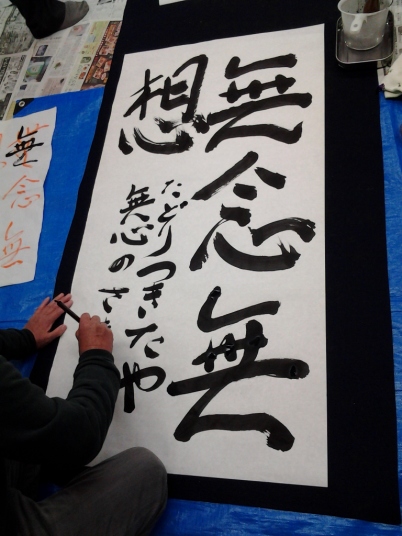 無念無
想
たどりつきたや
無心のさ
無念無